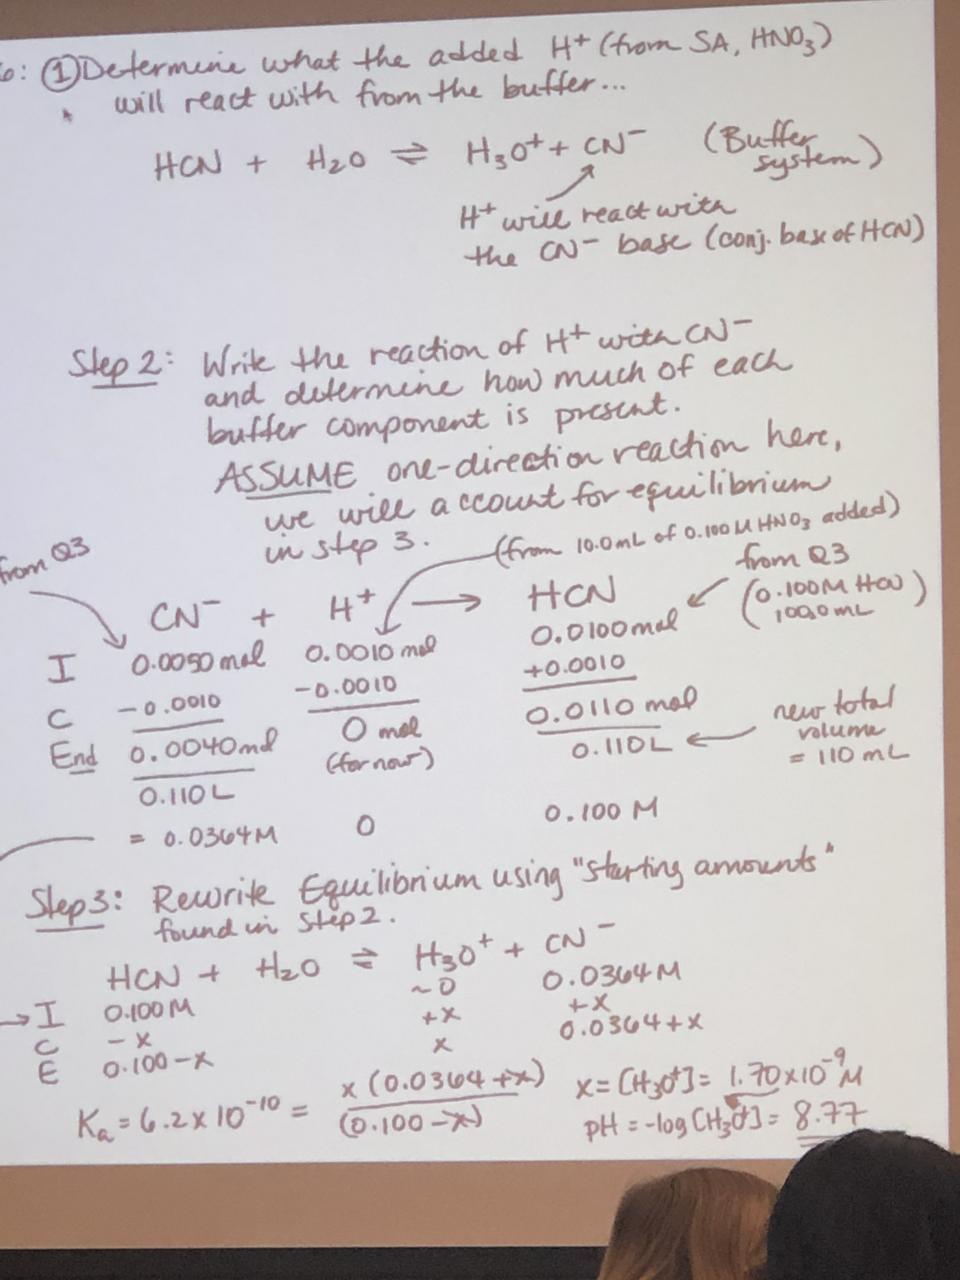 6: ① Determine what the added H⁺ (from SA, HNO₃)
will react with from the buffer...
HCN + H₂O ⇌ H₃O⁺ + CN⁻ (Buffer system)
H⁺ will react with
the CN⁻ base (conj. base of HCN)
Step 2: Write the reaction of H⁺ with CN⁻
and determine how much of each
buffer component is present.
ASSUME one-direction reaction here,
we will account for equilibrium
in step 3.
(from 10.0 mL of 0.100 M HNO₃ added)
from Q3
from Q3
(0.100M HCN)
100.0 mL
CN⁻ + H⁺ → HCN
I 0.0050 mol 0.0010 mol 0.0100 mol
C -0.0010 -0.0010 +0.0010
End 0.0040 mol 0 mol 0.0110 mol
(for now)
0.110L 0.110L
new total
volume
= 110 mL
= 0.0364M 0 0.100 M
Step 3: Rewrite Equilibrium using "starting amounts"
found in step 2.
HCN + H₂O ⇌ H₃O⁺ + CN⁻
→ I 0.100 M ~0 0.0364 M
C -x +x +x
E 0.100-x x 0.0364+x
Kₐ = 6.2 x 10⁻¹⁰ = x (0.0364+x) / (0.100-x)
x = [H₃O⁺] = 1.70x10⁻⁹ M
pH = -log [H₃O⁺] = 8.77